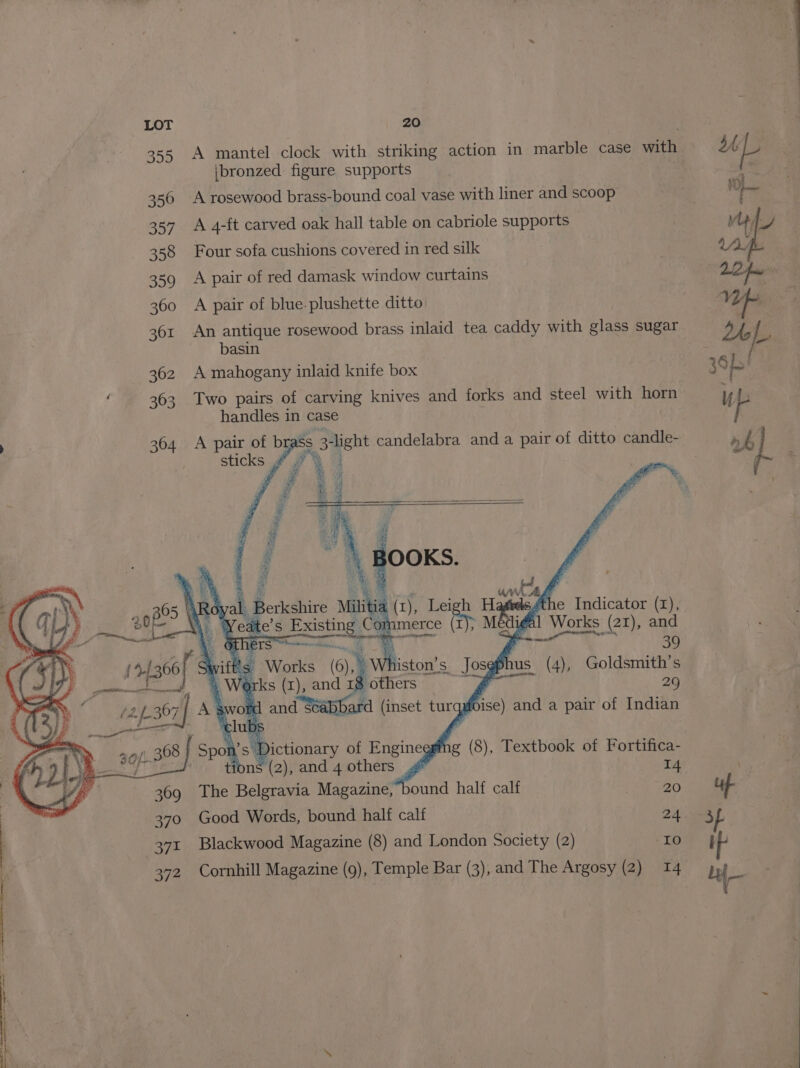 LOT 20
355 A mantel clock with striking action in marble case with
bronzed figure supports
356 A rosewood brass-bound coal vase with liner and scoop
357 A 4-ft carved oak hall table on cabriole supports
358 Four sofa cushions covered in red silk
359 A pair of red damask window curtains
360 A pair of blue plushette ditto
361 An antique rosewood brass inlaid tea caddy with glass sugar
basin
362 A mahogany inlaid knife box
363 Two pairs of carving knives and forks and steel with horn
handles in case
364 A pair of brass 3-light candelabra and a pair of ditto candle-
sticks
BOOKS.
365 Royal Berkshire Militia (1), Leigh the Indicator (1),
Yeate's Existing Commerce (1), Medical Works (21), and
others 39
366 Swift's Works (6), Whiston's Josephus (4), Goldsmith's
Works (1), and 18 others 29
367 A sword and scabbard (inset turquoise) and a pair of Indian
clubs
368 Spon's Dictionary of Engineering (8), Textbook of Fortifica-
tions (2), and 4 others 14
369 The Belgravia Magazine, bound half calf 20
370 Good Words, bound half calf 24
371 Blackwood Magazine (8) and London Society (2) 10
372 Cornhill Magazine (9), Temple Bar (3), and The Argosy (2) 14